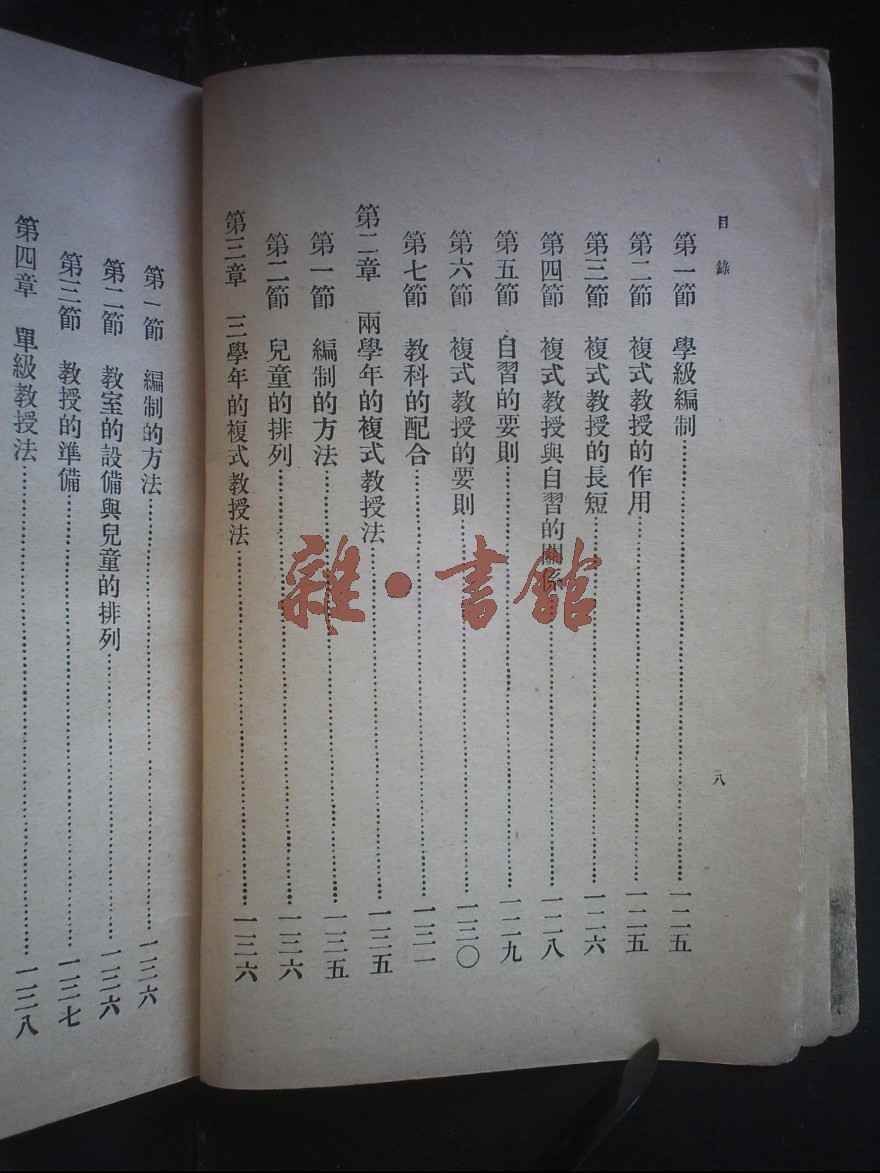 目錄
八
第一節 學級編制……一二五
第二節 複式教授的作用……一二五
第三節 複式教授的長短……一二六
第四節 複式教授與自習的關係……一二八
第五節 自習的要則……一二九
第六節 複式教授的要則……一三〇
第七節 教科的配合……一三一
第二章 兩學年的複式教授法……一三五
第一節 編制的方法……一三五
第二節 兒童的排列……一三六
第三章 三學年的複式教授法……一三六
第一節 編制的方法……一三六
第二節 教室的設備與兒童的排列……一三六
第三節 教授的準備……一三七
第四章 單級教授法……一三八
雜·書館